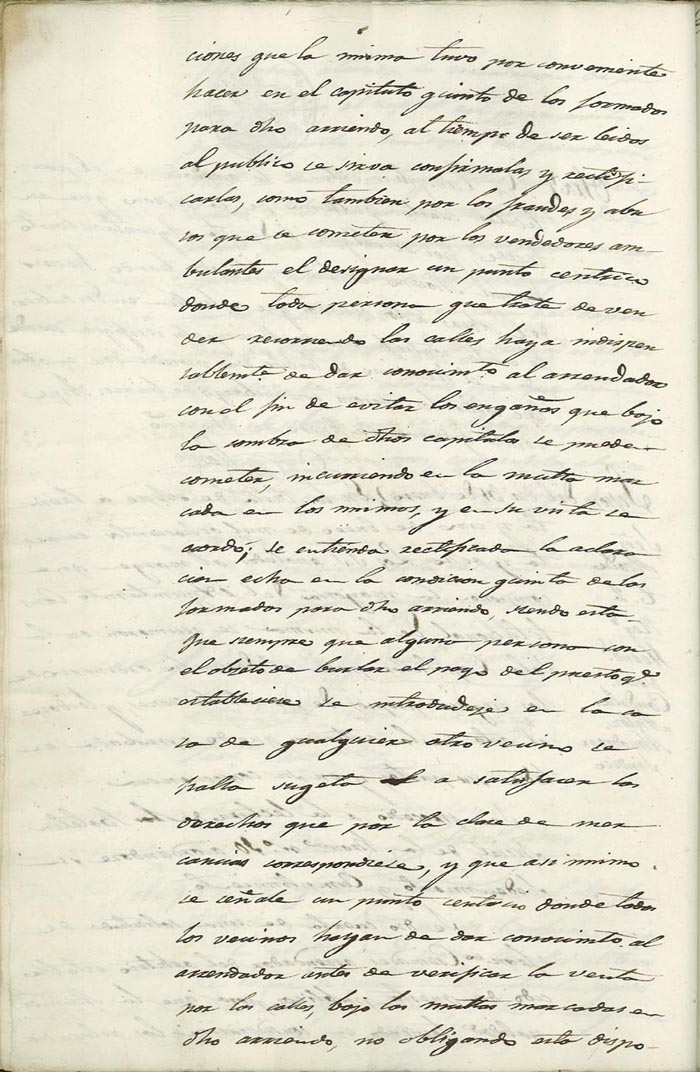 ciones que la misma tuvo por conveniente
hacer en el capitulo quinto de los formados
para dho arriendo, al tiempo de ser leidos
al publico se sirva confirmalas y rectifi-
carlas, como tambien por los fraudes y abu
sos que se cometen por los vendedores am-
bulantes el designar un punto centrico
donde toda persona que trate de ven
der recorriendo las calles haya indispen
sablemte. de dar conocimto. al arrendador
con el fin de evitar los engaños que bajo
la sombra de dhos capitulos se pueden
cometer, incurriendo en la multa mar
cada en los mismos, y en su vista se
acordó; se entienda rectificada la aclara
cion echa en la condicion quinta de los
formados para dho arriendo, siendo esta
que siempre que alguna persona con
el objeto de burlar el pago del puesto qe.
estableciese se introdudeje en la ca
sa de qualquier otro vecino se
halla sugeta a satisfacer los
derechos que por la clase de mer
cancias correspondiese, y que asi mismo
se señale un punto centrico donde todos
los vecinos hayan de dar conocimto. al
arrendador antes de verificar la venta
por las calles, bajo las multas marcadas en
dho arriendo, no obligando esta dispo-